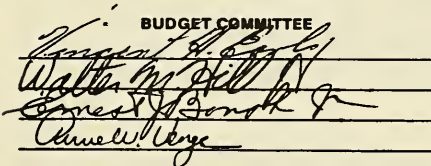 BUDGET COMMITTEE
Vincent A. Early
Walter M. Hill
Ernest J. Bonoh Jr
W. Verge